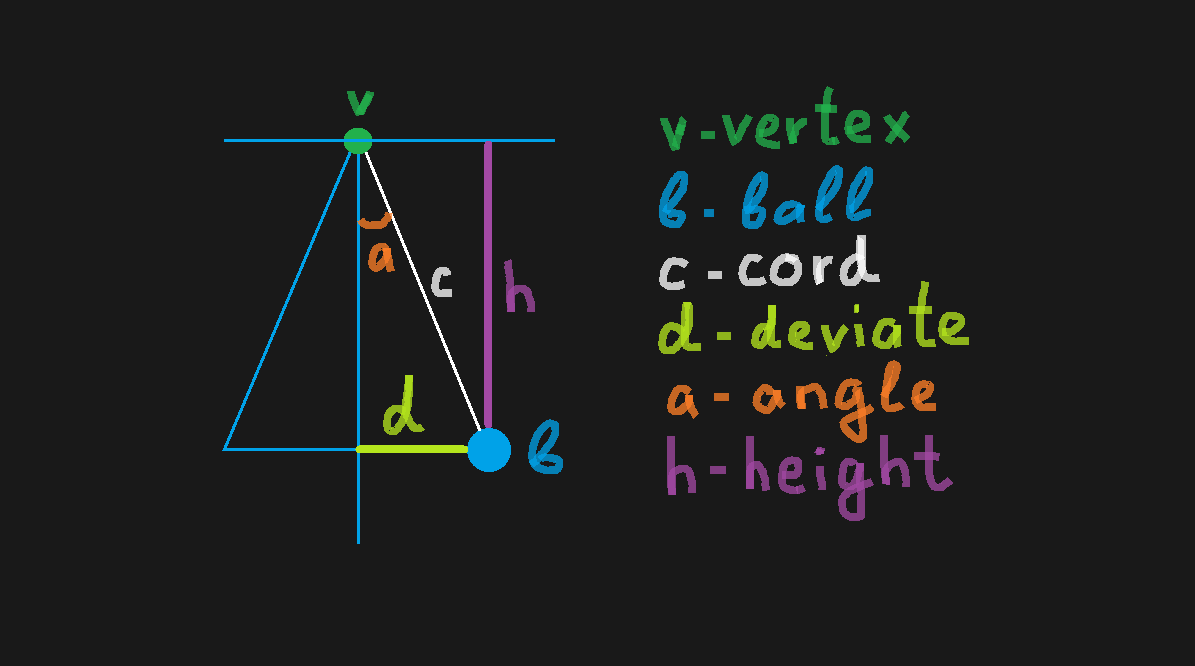 v
a
c
h
d
b
v - vertex
b - ball
c - cord
d - deviate
a - angle
h - height